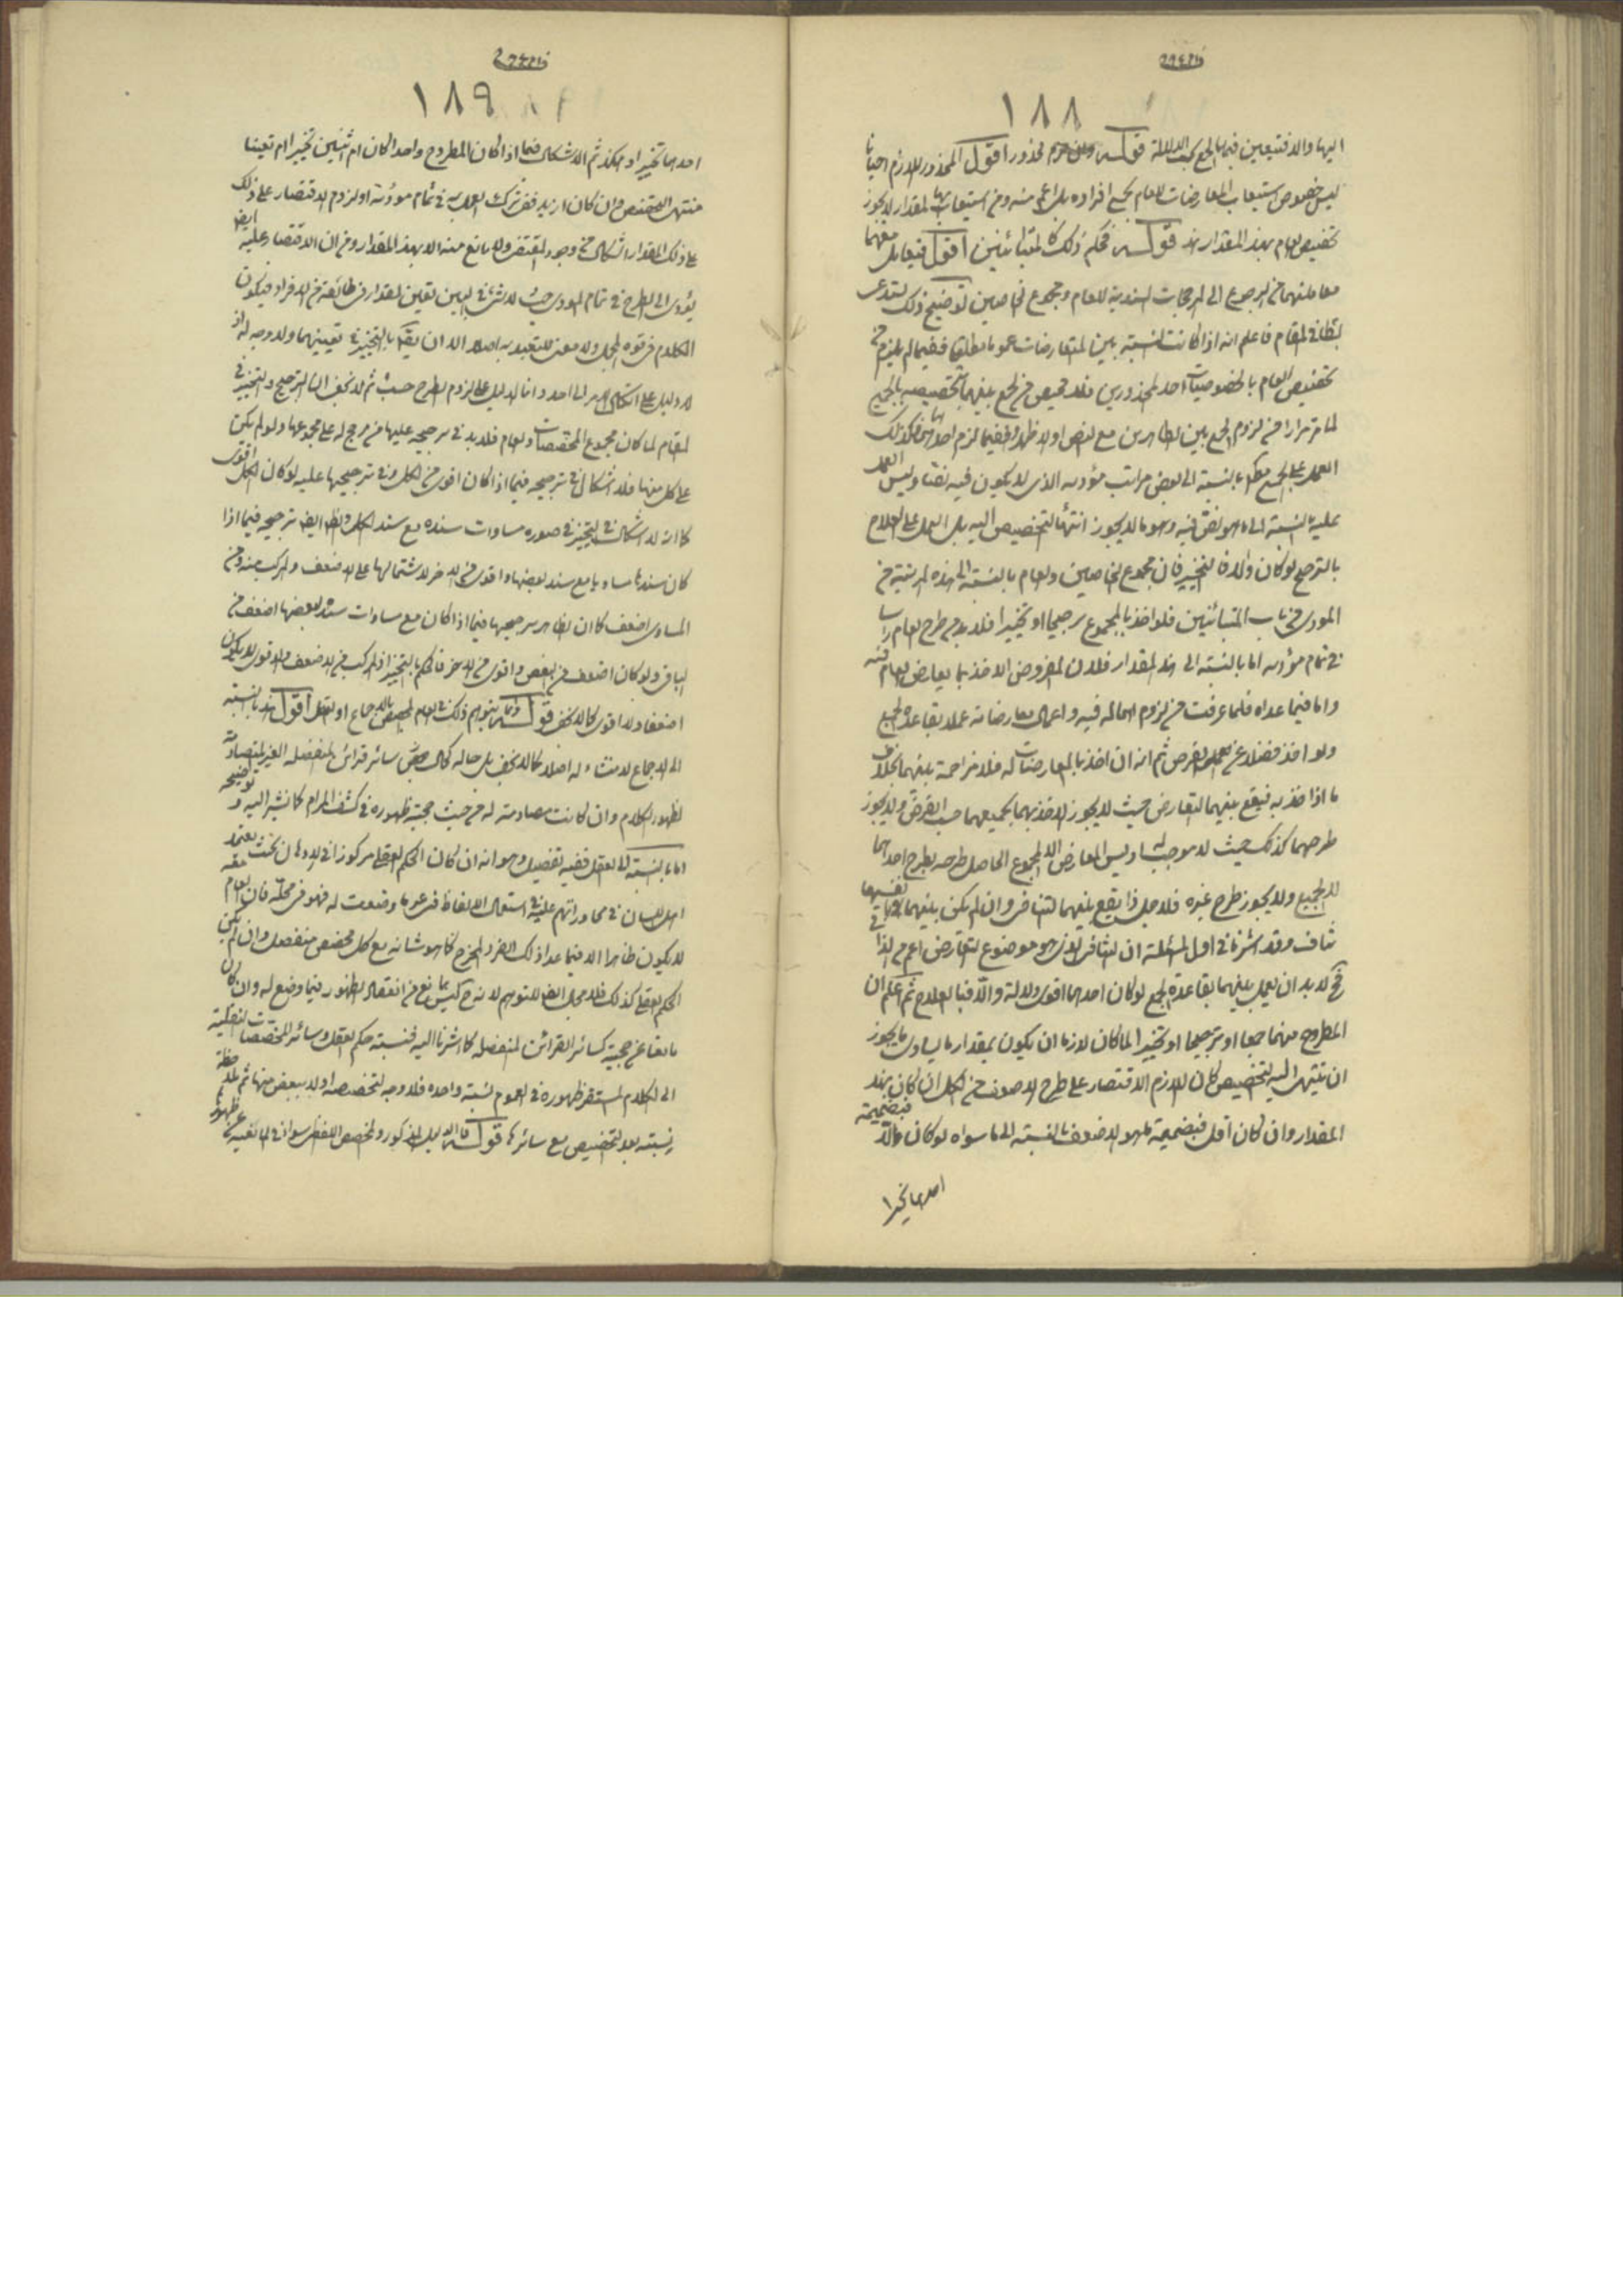 ١٨٨
اليها والا فيتعين فيها الجمع بحسب الدلالة قوله وان لزم محذور اقول المحذور اللازم احيانا
ليس خصوص استيعاب المعارضات للعام بجميع افراده بل اعم منه ومن استيعابها لمقدار لا يجوز
تخصيص العام بهذا المقدار قوله فحكم ذلك كالمتباينين اقول فيعامل معهما
معاملتهما من الرجوع الى المرجحات السندية للعام ومجموع الخاصين توضيح ذلك يستدعى
بسطا في المقام فاعلم انه اذا كانت النسبة بين المتعارضات عموما مطلقا ففيما لم يلزم من
تخصيص العام بالخصوصيات احد المحذورين فلا محيص من الجمع بينهما بتخصيصه بالجميع
لما مر مرارا من لزوم الجمع بين الظاهرين مع النص او الاظهر وفيما لزم احدهما فكذلك
العمل على الجميع بالنسبة الى بعض مراتب مؤداه الذى لا يكون فيه نصا وليس العمل
عليه بالنسبة الى ما هو نص فيه وهو ما لا يجوز انتهاء التخصيص اليه بل العمل على العلاج
بالترجيح لو كان والا فالتخيير فان مجموع الخاصين والعام بالنسبة الى هذه المرتبة من
المودى من باب المتباينين فلو اخذ بالمجموع ترجيحا او تخييرا فلا بد من طرح العام راسا
في تمام مؤداه اما بالنسبة الى هذا المقدار فلان المفروض الاخذ بما يعارض العام فيه
واما فيما عداه فلما عرفت من لزوم اهماله فيه واعمال معارضاته عملا بقاعدة الجمع
ولو اخذ فضلا عن ثم انه ان اخذ بالمعارضات له فلا مزاحمة بينهما بخلاف
ما اذا اخذ به فيقع بينهما التعارض حيث لا يجوز الاخذ بهما بجميعهما حسب الفرض ولا يجوز
طرحهما كذلك حيث لا موجب له وليس المعارض الا المجموع الحاصل طرحه بطرح احدهما
لا الجميع ولا يجوز طرح غيره فلاجل ذا يقع بينهما التنافى وان لم يكن بينهما بانفسهما
تناف وقد اشرنا في اول المسئلة ان التنافى الذى هو موضوع التعارض اعم من هذا
فح لا بد ان يعمل بينهما بقاعدة الجمع لو كان احدهما اقوى دلالة والا فبالعلاج ثم اعلم ان
المطروح منهما جمعا او ترجيحا او تخييرا لما كان لازما ان يكون بمقدار ما يساوى ما يجوز
ان ينتهى اليه التخصيص كان اللازم الاقتصار على طرح الاضعف من الكل ان كان بهذا
المقدار وان كان اقل فبضميمة ما هو الاضعف بالنسبة الى ما سواه لو كان والا فبضميمة
احدها تخييرا
١٨٩
احدها تخييرا وهكذا ثم الاشكال فيما اذا كان المطروح واحدا كان ام اثنين تخييرا ام تعيينا
منتهى التخصيص وان كان ازيد ففى ترك العمل به في تمام مؤداه او لزوم الاقتصار على ذلك
على ذلك المقدار اشكال من وجود المقتضى ولا مانع منه الا بهذا المقدار ومن ان الاقتصار عليه ايضا
يؤدى الى الطرح في تمام المودى حيث لا شئ في البين لتعيين المقدار في طائفة من الافراد فيكون
الكلام في قوه المجمل ولا معنى للتعبد به اصلا الا ان يقال بالتخيير في تعيينهما ولا وجه له اذ
لا دليل على اتكال الامر الى احد وانما الدليل على لزوم الطرح حسب ثم لا يخفى ان الترجيح والتخيير في
المقام لما كان مجموع المخصصات والعام فلا بد في ترجيحه عليها من مرجح له على مجموعها ولو لم يكن
على كل منها فلا اشكال في ترجيحه فيما اذا كان اقوى من الكل وفى ترجيحها عليه لو كان الكل اقوى
كما انه لا اشكال في التخيير في صوره مساوات سنده مع سند الكل والظ ايضا ترجيحه فيما اذا
كان سنده مساويا مع سند بعضها واقوى من الاخر لاشتمالها على الاضعف والمركب منه ومن
المساوى اضعف كما ان الظاهر ترجيحها فيما اذا كان مع مساوات سنده لبعضها اضعف من
الباقى ولو كان اضعف من البعض واقوى من الاخر فالحكم بالتخيير اذ المركب من الاضعف والاقوى لا يكون
اضعف ولا اقوى كما لا يخفى قوله وقد يتوهم ذلك في العام المخصص بالاجماع او العقل اقول هذا بالنسبة
الى الاجماع لا منشاء له اصلا كما لا يخفى بل حاله كحال سائر قرائن المنفصله الغير المتصادمة
لظهور الكلام وان كانت مصادمته له من حيث حجية ظهوره في كشف المرام كما نشير اليه وتوضيحه
اما بالنسبة الى العقل ففيه تفصيل وهو انه ان كان الحكم العقلى مركوزا في الاذهان بحيث يعتمد
اهل اللسان في محاوراتهم عليه في استعمال الالفاظ في غير ما وضعت له فهو في محله فان العام معه
لا يكون ظاهرا الا فيما عدا ذلك الفرد المخرج كما هو شانه مع كل مخصص متصل وان لم يكن
الحكم العقلى كذلك فلا مجال ايضا للتوهم لانه ح ليس بمانع من انعقاد الظهور فيما وضع له وان كان
مانعا عن حجيته كسائر القرائن المنفصله كما اشرنا اليه فنسبته حكم العقل وسائر المخصصات النقلية
الى الكلام المستقر ظهوره في العموم نسبة واحده فلا وجه لتخصيصه اولا ببعض منها ثم ملاحظة
نسبته بعد التخصيص مع سائرها قوله فالدليل المذكور والمخصص اللفظى سواء في المانعية عن ظهور